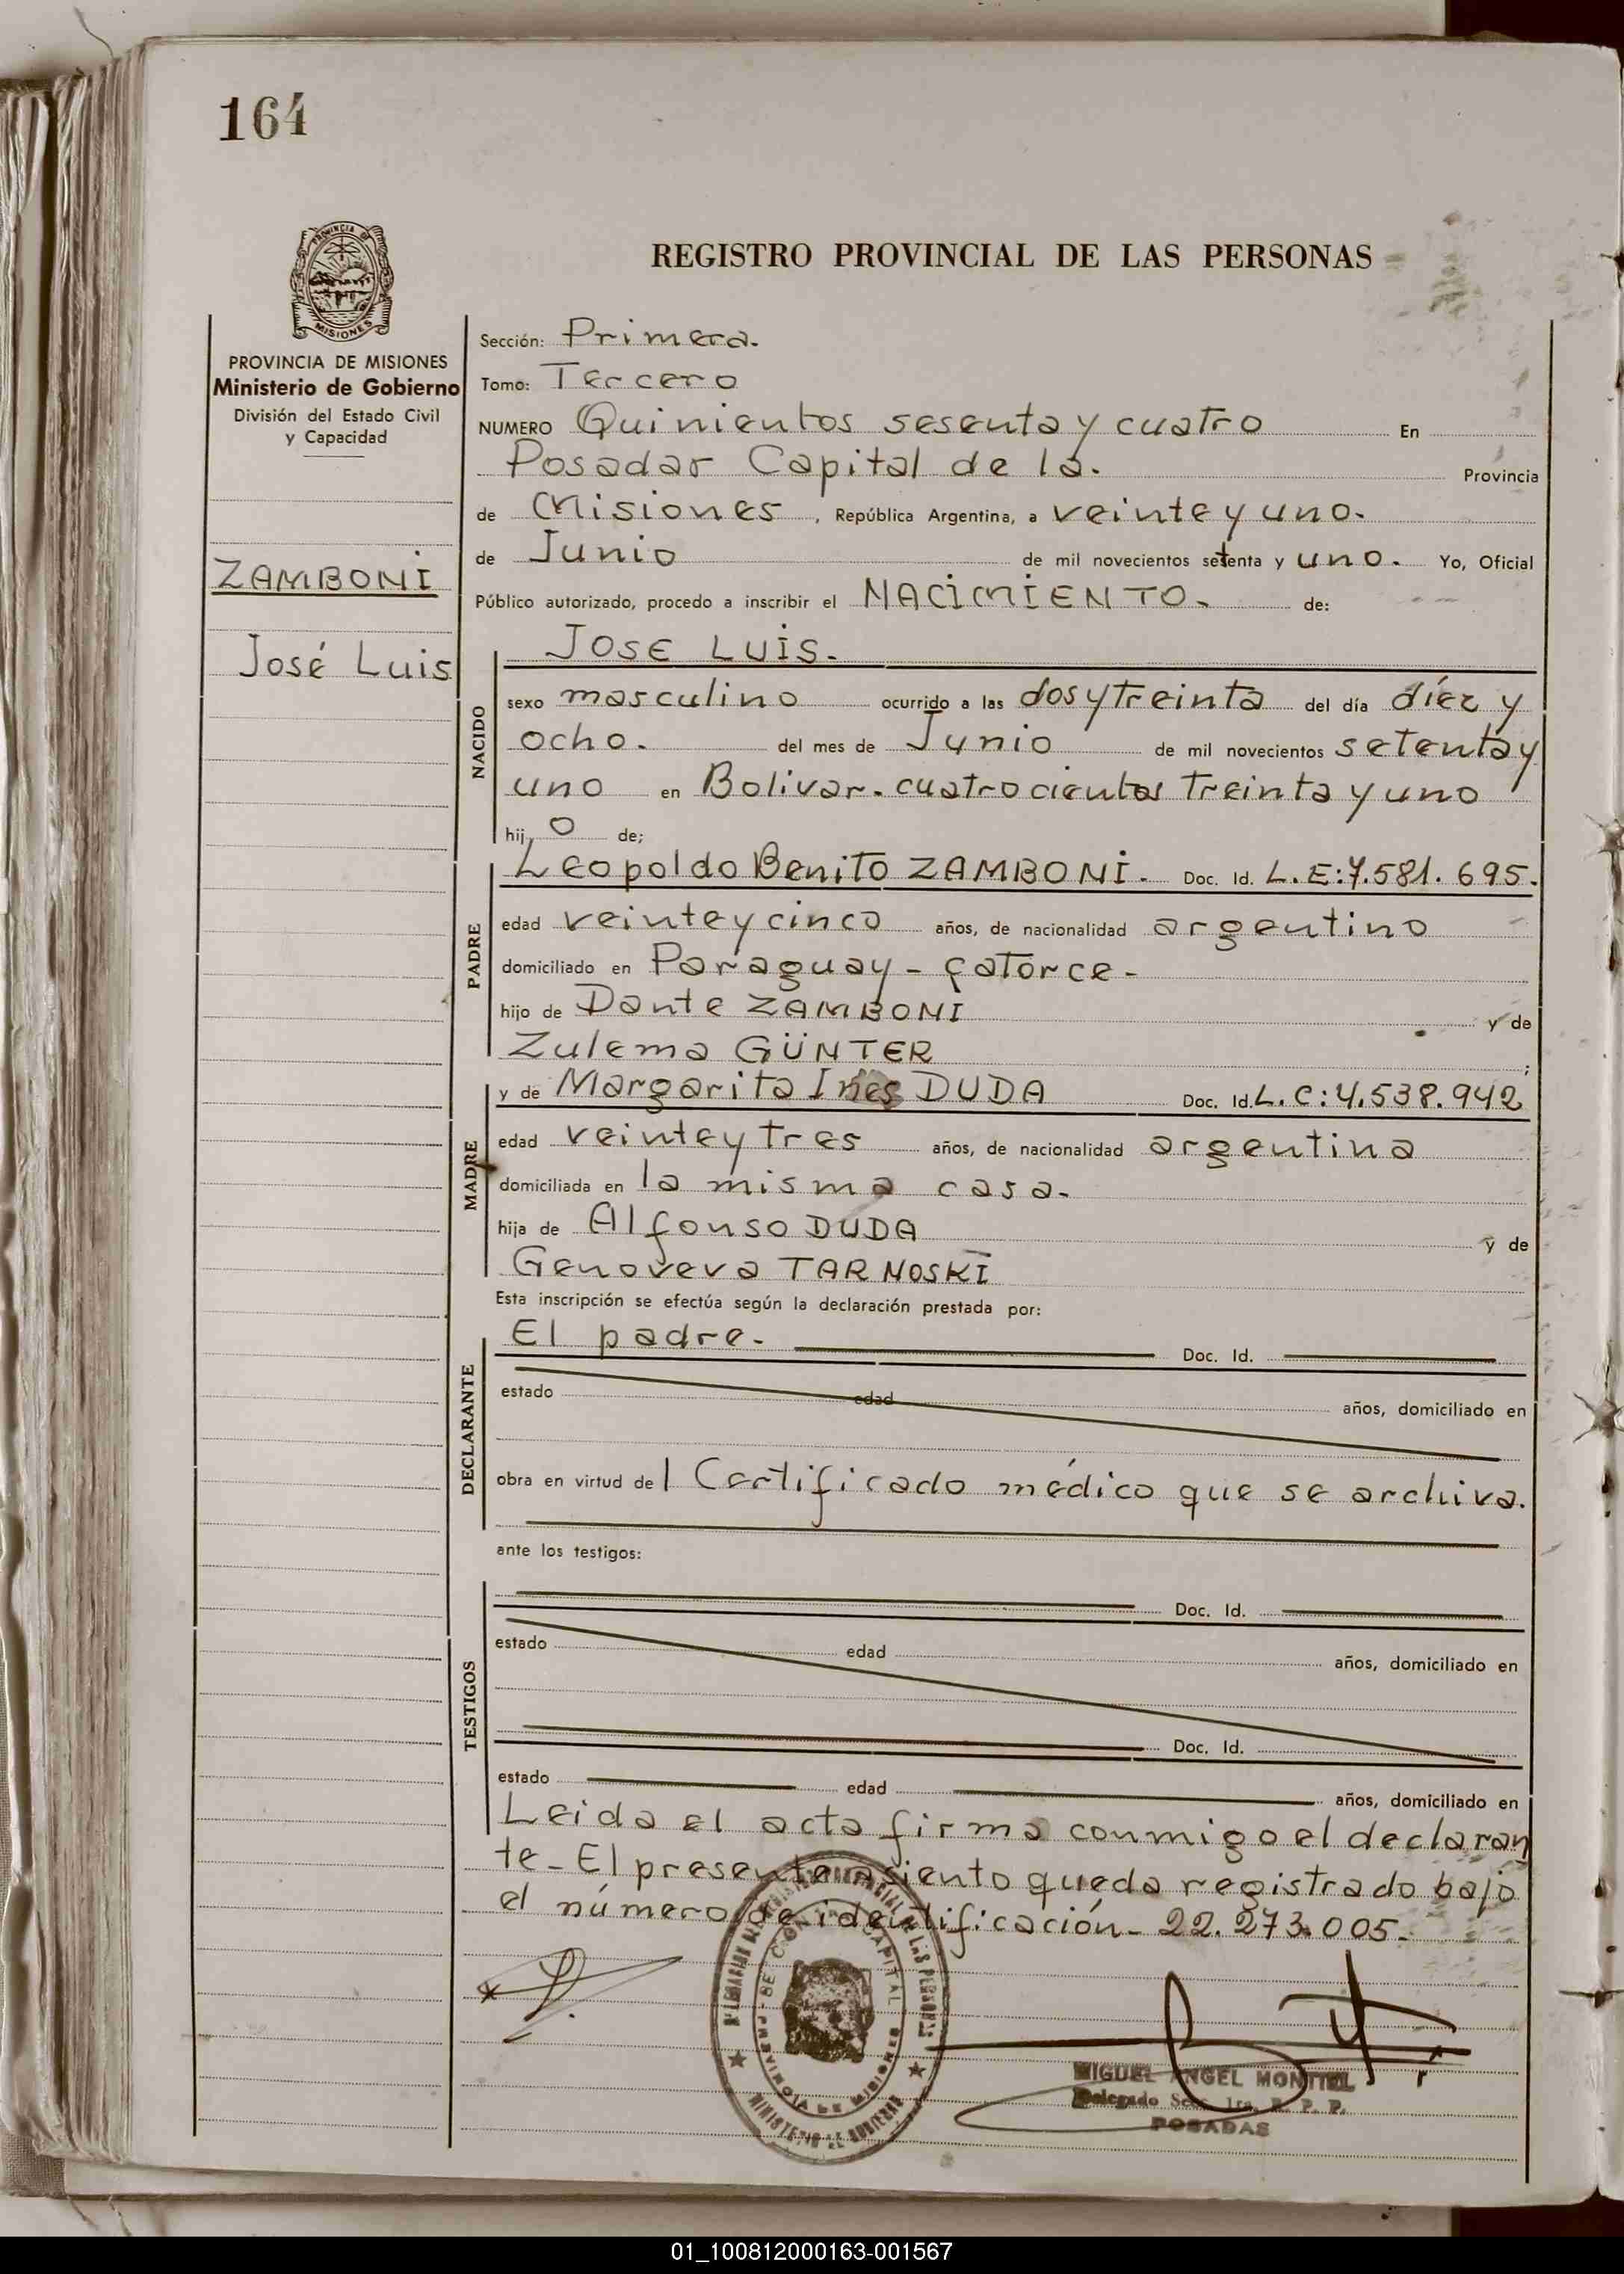 164
PROVINCIA DE
MISIONES
PROVINCIA DE MISIONES
Ministerio de Gobierno
División del Estado Civil
y Capacidad
ZAMBONI
José Luis
REGISTRO PROVINCIAL DE LAS PERSONAS
Sección: Primera.
Tomo: Tercero
NUMERO Quinientos sesenta y cuatro En
Posadas Capital de la. Provincia
de Misiones, República Argentina, a veinte y uno.
de Junio de mil novecientos setenta y uno. Yo, Oficial
Público autorizado, procedo a inscribir el NACIMIENTO. de:
NACIDO
JOSE LUIS.
sexo masculino ocurrido a las dos y treinta del día diez y
ocho. del mes de Junio de mil novecientos setenta y
uno en Bolivar. cuatrocientos treinta y uno
hijo de;
PADRE
Leopoldo Benito ZAMBONI. Doc. Id. L.E:7.581.695.
edad veinte y cinco años, de nacionalidad argentino
domiciliado en Paraguay - catorce -
hijo de Dante ZAMBONI y de
Zulema GÜNTER ;
MADRE
y de Margarita Ines DUDA Doc. Id. L.C:4.538.942
edad veinte y tres años, de nacionalidad argentina
domiciliada en la misma casa.
hija de Alfonso DUDA y de
Genoveva TARNOSKI
Esta inscripción se efectúa según la declaración prestada por:
DECLARANTE
El padre. Doc. Id.
estado edad años, domiciliado en
obra en virtud del Certificado médico que se archiva.
ante los testigos:
TESTIGOS
Doc. Id.
estado edad años, domiciliado en
Doc. Id.
estado edad años, domiciliado en
Leida el acta firma conmigo el declaran
te - El presente asiento queda registrado bajo
el número de identificación - 22.273.005.-
REGISTRO PROVINCIAL DE LAS PERSONAS
CAPITAL
PROVINCIA DE MISIONES
MINISTERIO DE GOBIERNO
MIGUEL ANGEL MONTIEL
Delegado Secc. 1ra. R. P. P.
POSADAS
01_100812000163-001567